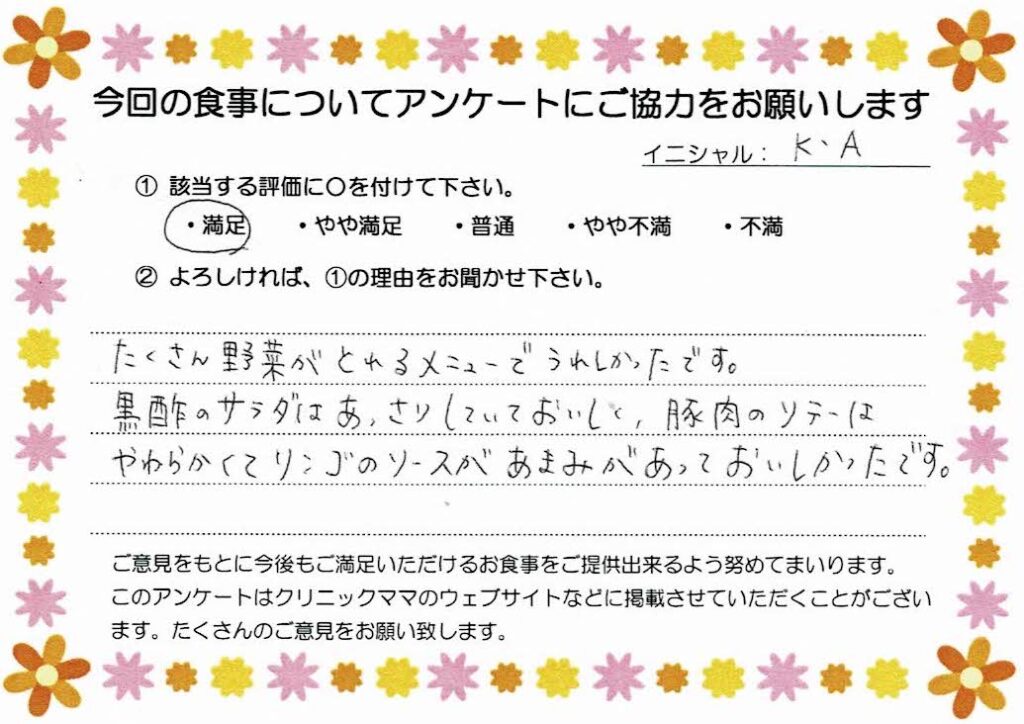 今回の食事についてアンケートにご協力をお願いします
イニシャル： K、A
① 該当する評価に〇を付けて下さい。
・満足 ・やや満足 ・普通 ・やや不満 ・不満
② よろしければ、①の理由をお聞かせ下さい。
たくさん野菜がとれるメニューでうれしかったです。
黒酢のサラダはあっさりしていておいしく、豚肉のソテーは
やわらかくてリンゴのソースがあまみがあっておいしかったです。
ご意見をもとに今後もご満足いただけるお食事をご提供出来るよう努めてまいります。
このアンケートはクリニックママのウェブサイトなどに掲載させていただくことがござい
ます。たくさんのご意見をお願い致します。